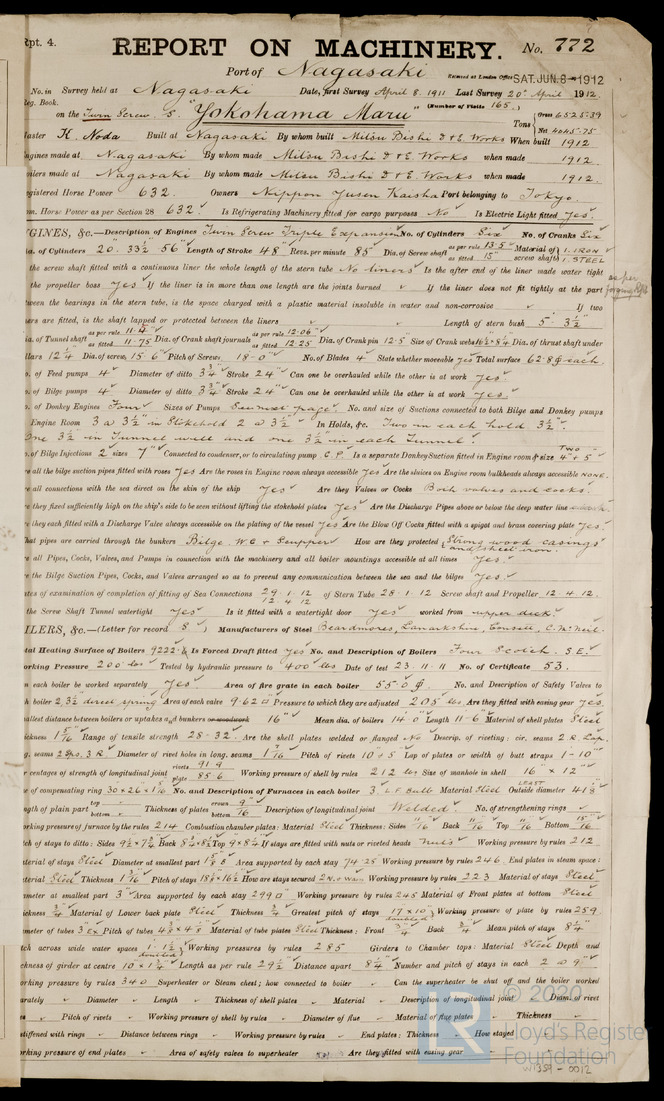 Rpt. 4.
REPORT ON MACHINERY. No. 772
Port of Nagasaki Received at London Office SAT. JUN. 8 - 1912
No. in Survey held at Nagasaki Date, first Survey April 8. 1911 Last Survey 20th April 1912.
Reg. Book. (Number of Visits 165.)
on the Twin Screw S. "Yokohama Maru" Tons Gross 6525.39 Net 4045.75
Master K. Noda Built at Nagasaki By whom built Mitsu Bishi D & E Works When built 1912.
Engines made at Nagasaki By whom made Mitsu Bishi D & E. Works when made 1912.
Boilers made at Nagasaki By whom made Mitsu Bishi D & E. Works when made 1912.
Registered Horse Power 632. Owners Nippon Yusen Kaisha Port belonging to Tokyo.
Nom. Horse Power as per Section 28 632. Is Refrigerating Machinery fitted for cargo purposes No Is Electric Light fitted Yes.
ENGINES, &c.—Description of Engines Twin Screw Triple Expansion No. of Cylinders Six No. of Cranks Six
Dia. of Cylinders 20. 33½ 56" Length of Stroke 48" Revs. per minute 85 Dia. of Screw shaft as per rule 13.5 as fitted 15" Material of screw shaft 1. IRON 1. STEEL
as per forging Rpt
the screw shaft fitted with a continuous liner the whole length of the stern tube No liners Is the after end of the liner made water tight
the propeller boss Yes If the liner is in more than one length are the joints burned If the liner does not fit tightly at the part
between the bearings in the stern tube, is the space charged with a plastic material insoluble in water and non-corrosive If two
liners are fitted, is the shaft lapped or protected between the liners Length of stern bush 5' 3½"
Dia. of Tunnel shaft as per rule as fitted 11.75 Dia. of Crank shaft journals as per rule 12.06 as fitted 12.25 Dia. of Crank pin 12.5 Size of Crank webs Dia. of thrust shaft under
collars 12¼ Dia. of screw 15.6 Pitch of Screw 18-0" No. of Blades 4 State whether moveable Yes Total surface 62.8 each.
No. of Feed pumps 4 Diameter of ditto 3¾ Stroke 24" Can one be overhauled while the other is at work Yes.
No. of Bilge pumps 4 Diameter of ditto 3¾ Stroke 24" Can one be overhauled while the other is at work Yes.
No. of Donkey Engines Four Sizes of Pumps See next page. No. and size of Suctions connected to both Bilge and Donkey pumps
Engine Room 3 @ 3½" in Stokehold 2 @ 3½" In Holds, &c. Two in each hold 3½".
One 3½ in Tunnel well and one 3½" in each Tunnel.
No. of Bilge Injections 2 sizes 7" Connected to condenser, or to circulating pump C.P. Is a separate Donkey Suction fitted in Engine room & size TWO 4" & 5"
all the bilge suction pipes fitted with roses Yes Are the roses in Engine room always accessible Yes Are the sluices on Engine room bulkheads always accessible NONE.
all connections with the sea direct on the skin of the ship Yes Are they Valves or Cocks Both valves and cocks.
they fixed sufficiently high on the ship's side to be seen without lifting the stokehold plates Yes Are the Discharge Pipes above or below the deep water line
they each fitted with a Discharge Valve always accessible on the plating of the vessel Yes Are the Blow Off Cocks fitted with a spigot and brass covering plate Yes.
What pipes are carried through the bunkers Bilge. W.C. & Scupper How are they protected Strong wood casings and sheet iron.
all Pipes, Cocks, Valves, and Pumps in connection with the machinery and all boiler mountings accessible at all times Yes.
the Bilge Suction Pipes, Cocks, and Valves arranged so as to prevent any communication between the sea and the bilges Yes.
dates of examination of completion of fitting of Sea Connections 29.1.12 12.4.12 of Stern Tube 28.1.12 Screw shaft and Propeller 12.4.12.
the Screw Shaft Tunnel watertight Yes Is it fitted with a watertight door Yes worked from upper deck.
BOILERS, &c.—(Letter for record S) Manufacturers of Steel Beardmores, Lanarkshire, Consett, C. McNeil.
Total Heating Surface of Boilers 9222 Is Forced Draft fitted Yes No. and Description of Boilers Four Scotch. S.E.
Working Pressure 200 lbs Tested by hydraulic pressure to 400 lbs Date of test 23.11.11 No. of Certificate 53.
each boiler be worked separately Yes. Area of fire grate in each boiler 55.0 No. and Description of Safety Valves to
each boiler 2, 3½ direct spring Area of each valve 9.62 Pressure to which they are adjusted 205 lbs. Are they fitted with easing gear Yes.
Smallest distance between boilers or uptakes and bunkers or woodwork 16" Mean dia. of boilers 14.0 Length 11-6" Material of shell plates Steel
Thickness Range of tensile strength 28-32 Are the shell plates welded or flanged No Descrip. of riveting: cir. seams 2.R. Lap.
long. seams 2 BS. 3 R. Diameter of rivet holes in long. seams 1 7/16 Pitch of rivets 10 & 5 Lap of plates or width of butt straps 1-10"
Percentages of strength of longitudinal joint rivets 91.9 plate 85.6 Working pressure of shell by rules 212 lbs Size of manhole in shell 16" x 12"
Size of compensating ring 30 x 26 x 1 No. and Description of Furnaces in each boiler 3 L.F. bulb Material Steel Outside diameter LEAST 41
Length of plain part top bottom Thickness of plates crown bottom 9"/16 Description of longitudinal joint Welded. No. of strengthening rings
Working pressure of furnace by the rules 214 Combustion chamber plates: Material Steel Thickness: Sides 11/16 Back 11/16 Top 11/16 Bottom 15/16
Pitch of stays to ditto: Sides Back Top If stays are fitted with nuts or riveted heads Nuts Working pressure by rules 212
Material of stays Steel Diameter at smallest part Area supported by each stay 74.25 Working pressure by rules 246. End plates in steam space:
Material Steel Thickness 1 3/16 Pitch of stays How are stays secured Working pressure by rules 223 Material of stays Steel
Diameter at smallest part 3" Area supported by each stay 299 Working pressure by rules 245 Material of Front plates at bottom Steel
Thickness ¾ Material of Lower back plate Steel Thickness ¾ Greatest pitch of stays 17 x 10 Working pressure of plate by rules 259
Diameter of tubes 3 Ex Pitch of tubes Material of tube plates Steel Thickness: Front ¾ Back ¾ Mean pitch of stays 8¼
Pitch across wide water spaces 1. 1½ Working pressures by rules 285 Girders to Chamber tops: Material Steel Depth and
Thickness of girder at centre Length as per rule 29½ Distance apart 8¼ Number and pitch of stays in each 2 @ 9"
Working pressure by rules 340 Superheater or Steam chest; how connected to boiler Can the superheater be shut off and the boiler worked
separately Diameter Length Thickness of shell plates Material Description of longitudinal joint Diam. of rivet
Pitch of rivets Working pressure of shell by rules Diameter of flue Material of flue plates Thickness
stiffened with rings Distance between rings Working pressure by rules End plates: Thickness How stayed
Working pressure of end plates Area of safety valves to superheater Are they fitted with easing gear
© 2020
Lloyd's Register
Foundation
W1359-0012